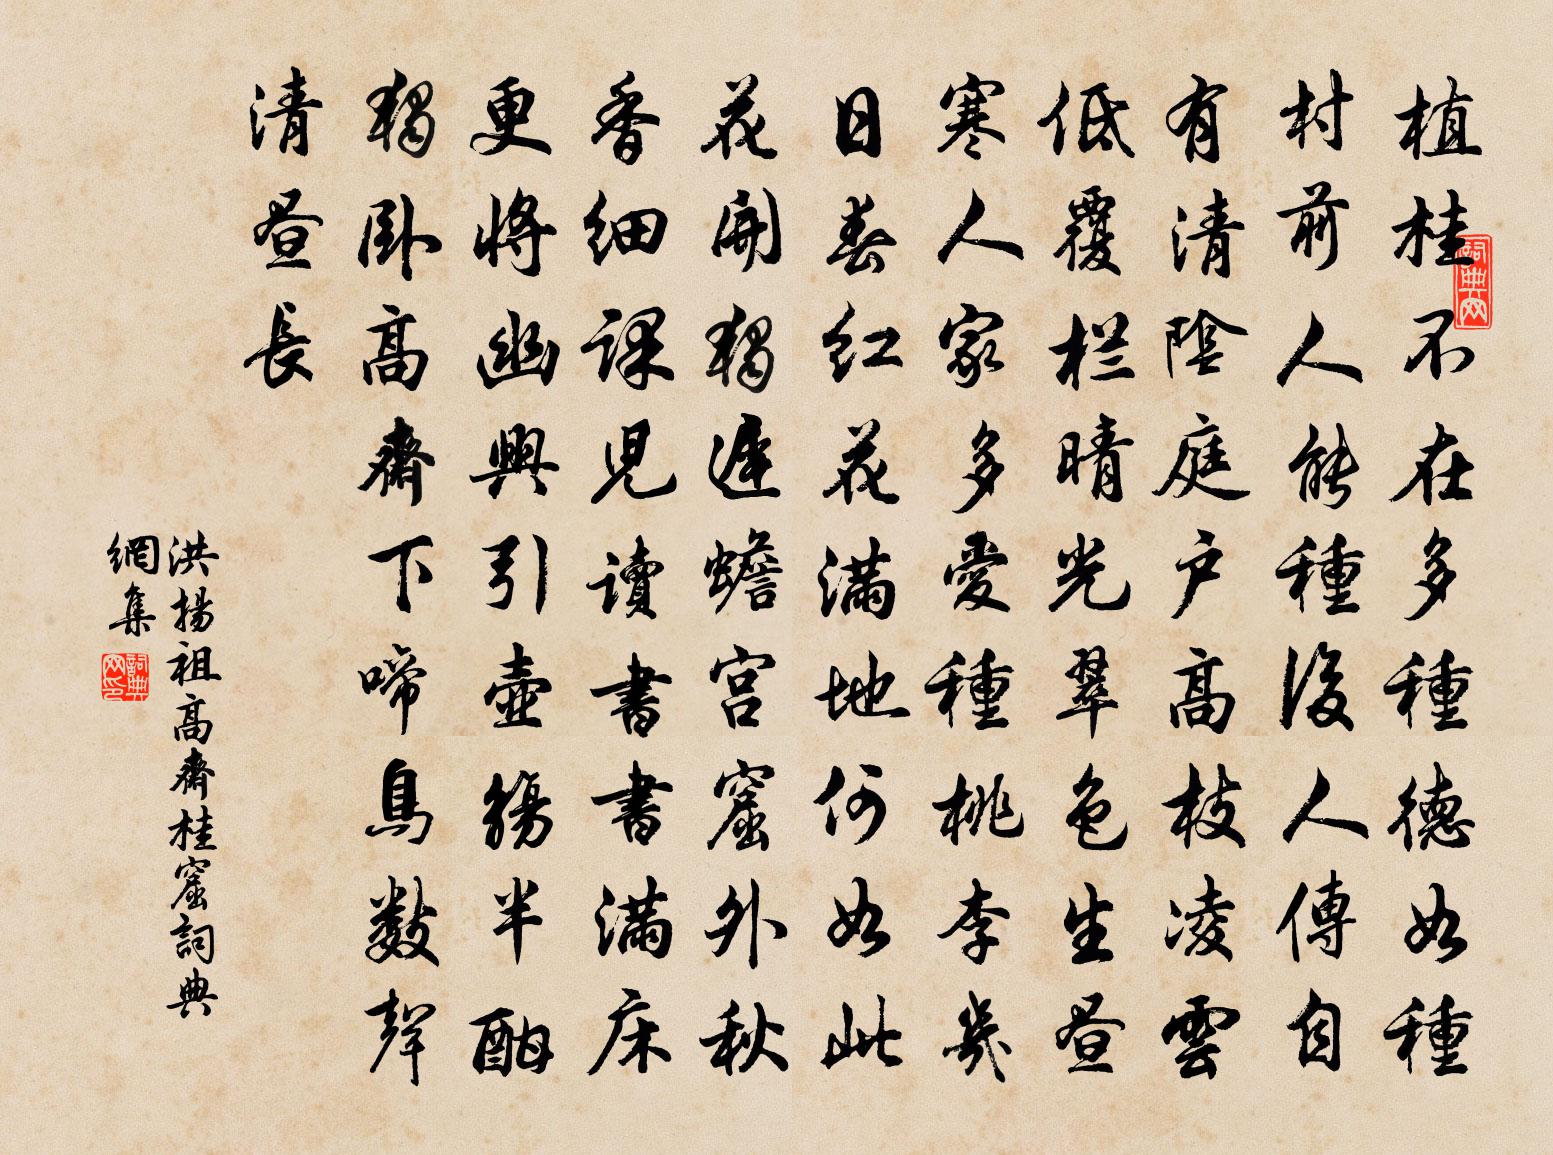 植桂不在多種德如種
村前人能種後人傳自
有清陰庭户高枝凌雲
低覆栏晴光翠色生昼
寒人家多愛種桃李幾
日春红花滿地何如此
花開獨遲蟾宫窟外秋
香细課兒讀書書滿床
更將幽興引壺觴半酣
獨卧高齋下啼鳥數聲
清昼長
洪揚祖高齋桂窟詞典
網集
詞典网
詞典网印